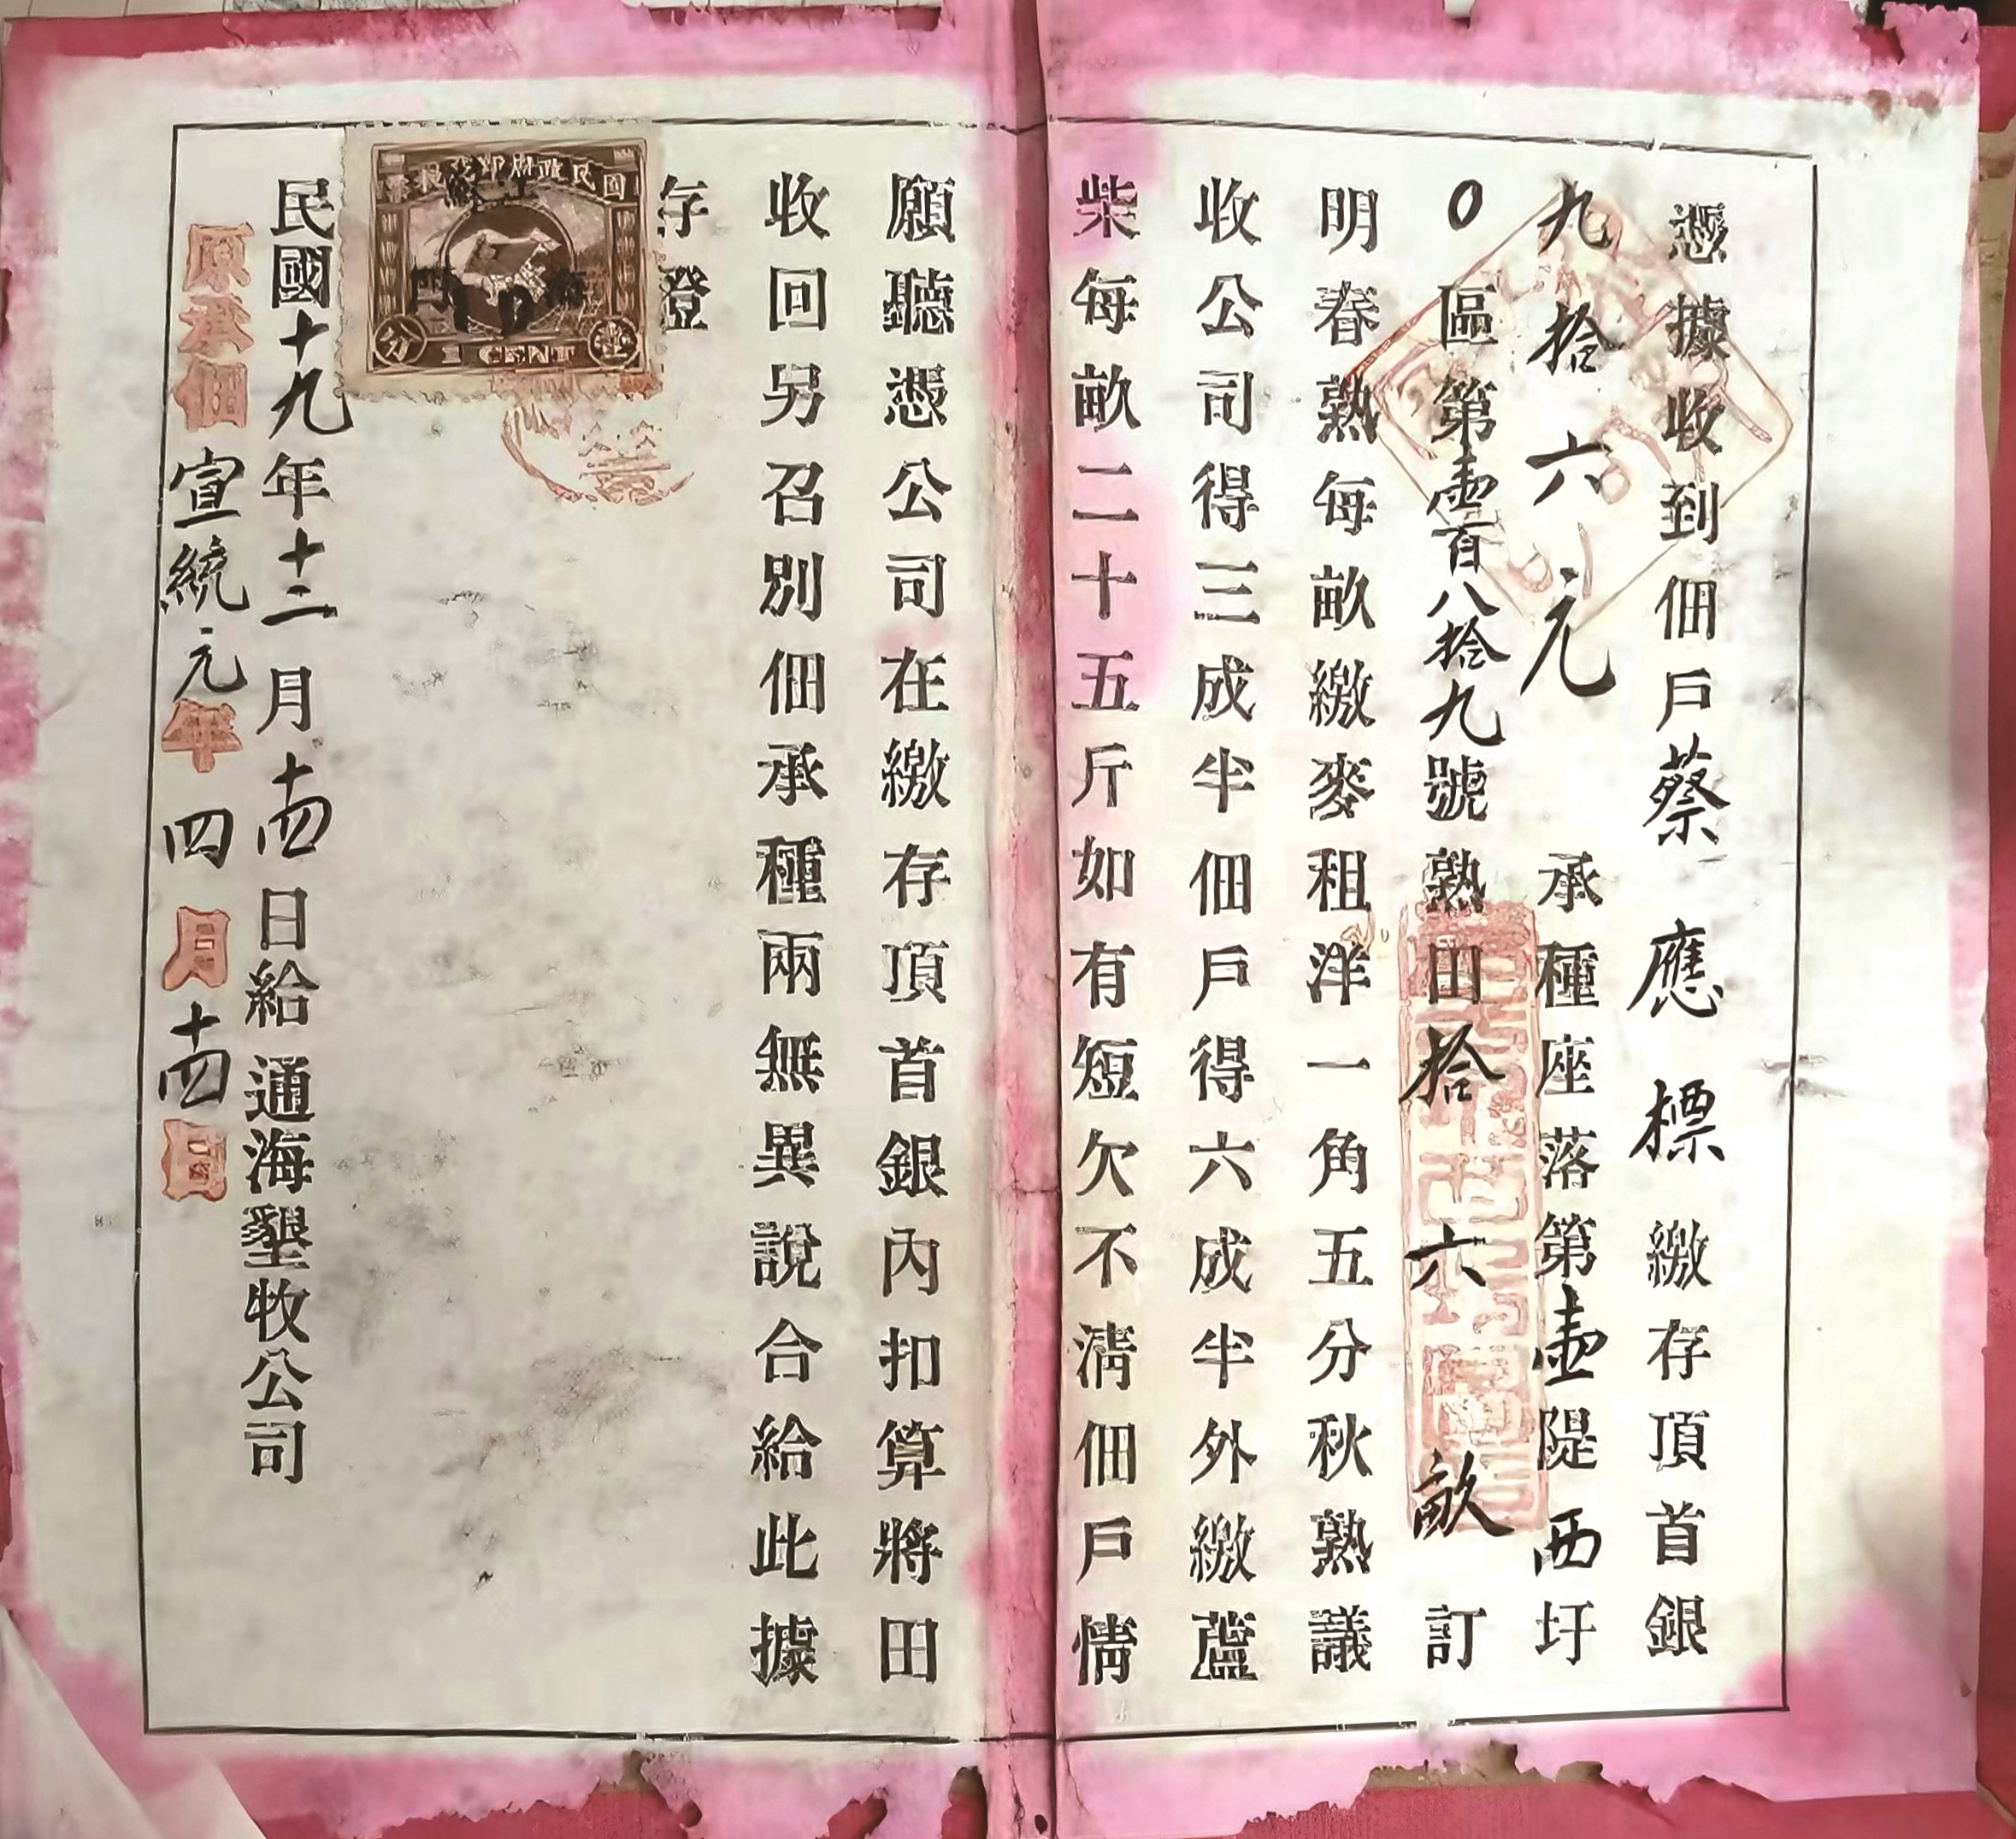 憑據收到佃戶蔡應標繳存頂首銀
九拾六元 承種座落第壹隄西圩
0區第壹百八拾九號熟田拾六畝訂
明春熟每畝繳麥租洋一角五分秋熟議
收公司得三成半佃戶得六成半外繳蘆
柴每畝二十五斤如有短欠不清佃戶情
願聽憑公司在繳存頂首銀內扣算將田
收回另召別佃承種兩無異說合給此據
存證
民國十九年十二月十四日給 通海墾牧公司
原承佃宣統元年四月十四日
國民政府印花稅票
分 1 CENT 壹